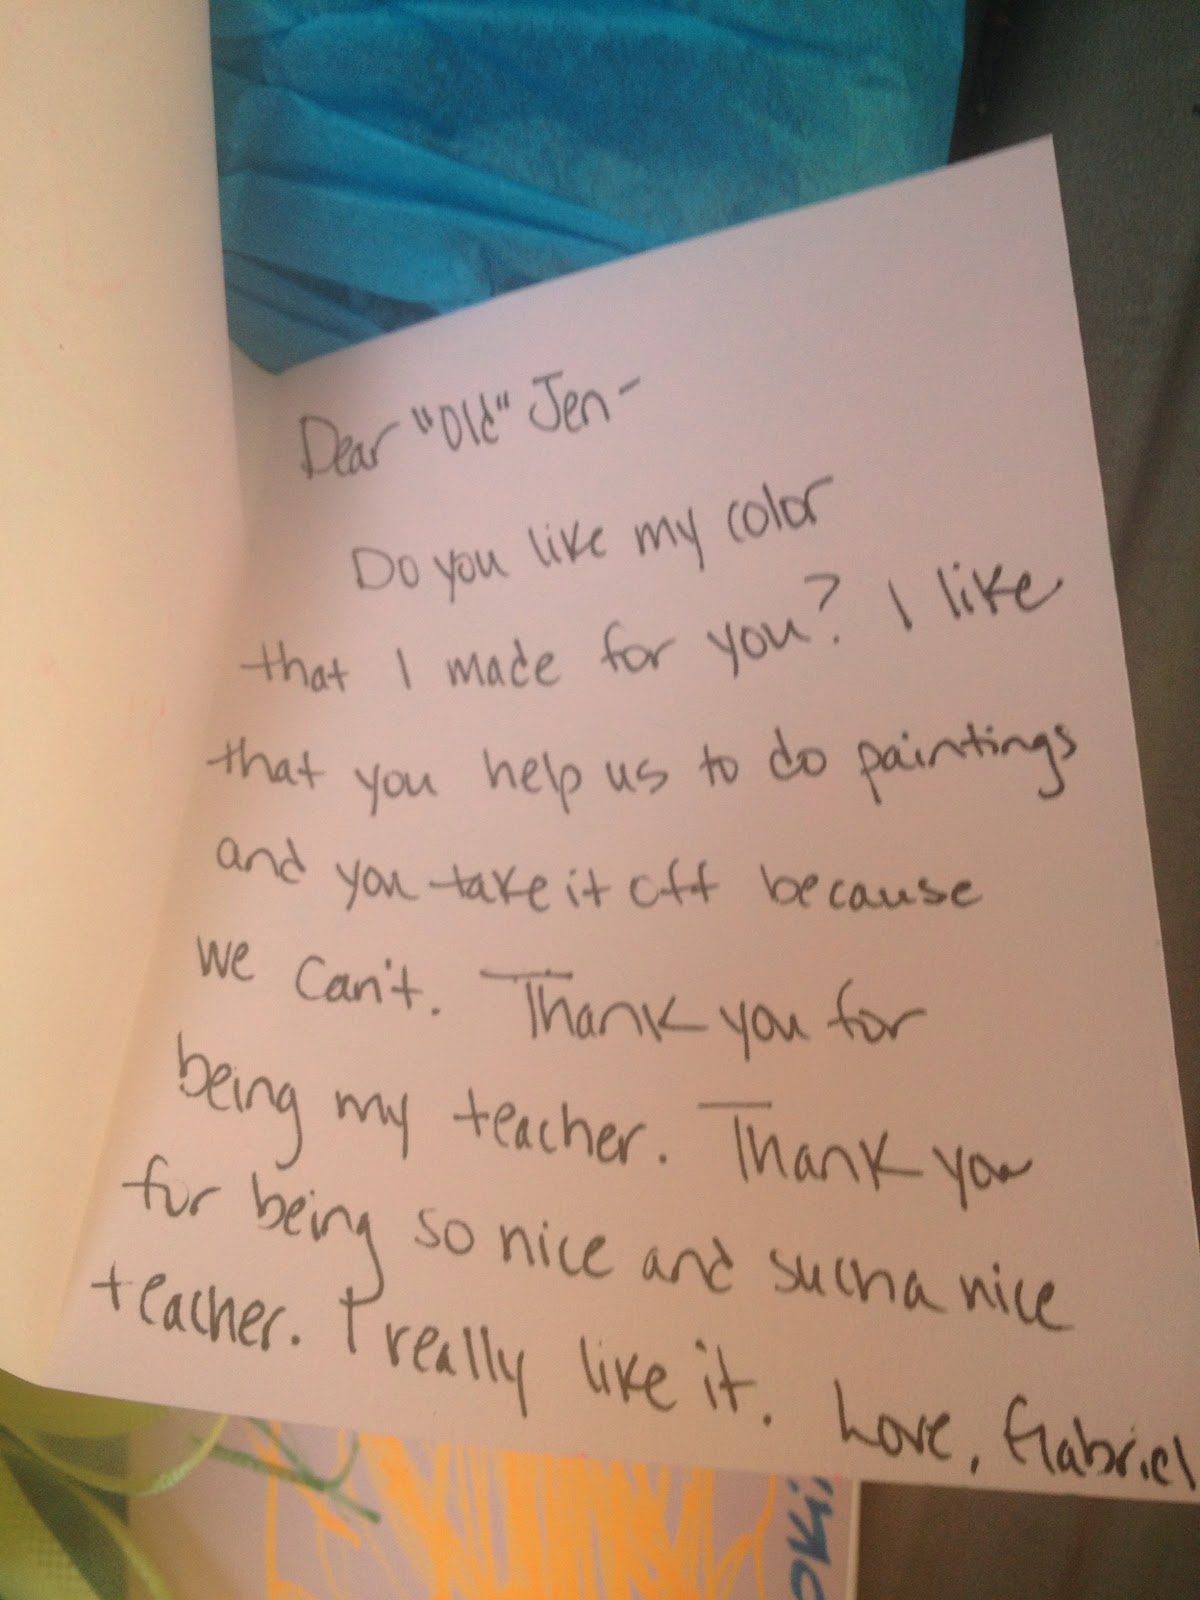 Dear "Old" Jen-
Do you like my color
that I made for you? I like
that you help us to do paintings
and you take it off because
we can't. Thank you for
being my teacher. Thank you
for being so nice and such a nice
teacher. I really like it. Love, Gabriel